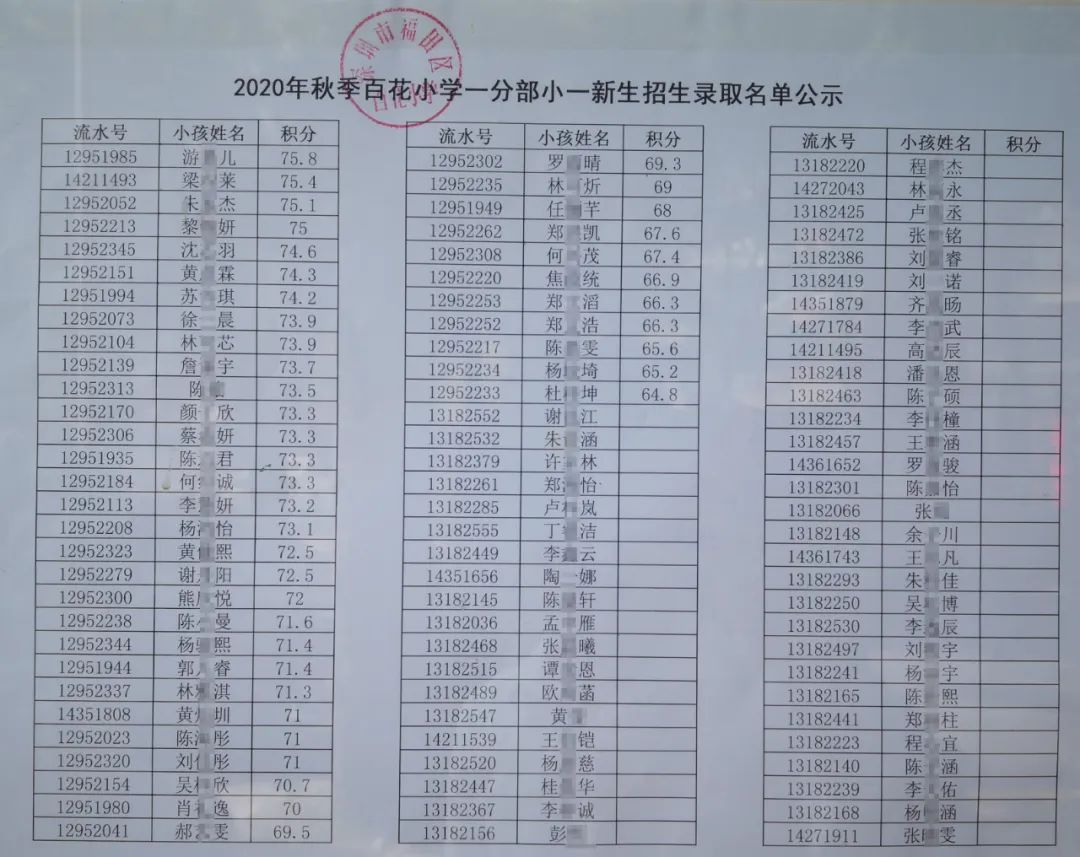 深圳市福田区
百花小学
2020年秋季百花小学一分部小一新生招生录取名单公示
流水号 小孩姓名 积分
12951985 游 儿 75.8
14211493 梁 莱 75.4
12952052 朱 杰 75.1
12952213 黎 妍 75
12952345 沈 羽 74.6
12952151 黄 霖 74.3
12951994 苏 琪 74.2
12952073 徐 晨 73.9
12952104 林 芯 73.9
12952139 詹 宇 73.7
12952313 陈 73.5
12952170 颜 欣 73.3
12952306 蔡 妍 73.3
12951935 陈 君 73.3
12952184 何 诚 73.3
12952113 李 妍 73.2
12952208 杨 怡 73.1
12952323 黄 熙 72.5
12952279 谢 阳 72.5
12952300 熊 悦 72
12952238 陈 曼 71.6
12952344 杨 熙 71.4
12951944 郭 睿 71.4
12952337 林 淇 71.3
14351808 黄 圳 71
12952023 陈 彤 71
12952320 刘 彤 71
12952154 吴 欣 70.7
12951980 肖 逸 70
12952041 郝 雯 69.5
流水号 小孩姓名 积分
12952302 罗 晴 69.3
12952235 林 炘 69
12951949 任 芊 68
12952262 郑 凯 67.6
12952308 何 茂 67.4
12952220 焦 统 66.9
12952253 郑 滔 66.3
12952252 郑 浩 66.3
12952217 陈 雯 65.6
12952234 杨 琦 65.2
12952233 杜 坤 64.8
13182552 谢 江
13182532 朱 涵
13182379 许 林
13182261 郑 怡
13182285 卢 岚
13182555 丁 洁
13182449 李 云
14351656 陶 娜
13182145 陈 轩
13182036 孟 雁
13182468 张 曦
13182515 谭 恩
13182489 欧 菡
13182547 黄
14211539 王 铠
13182520 杨 慈
13182447 桂 华
13182367 李 诚
13182156 彭
流水号 小孩姓名 积分
13182220 程 杰
14272043 林 永
13182425 卢 丞
13182472 张 铭
13182386 刘 睿
13182419 刘 诺
14351879 齐 旸
14271784 李 武
14211495 高 辰
13182418 潘 恩
13182463 陈 硕
13182234 李 橦
13182457 王 涵
14361652 罗 骏
13182301 陈 怡
13182066 张
13182148 余 川
14361743 王 凡
13182293 朱 佳
13182250 吴 博
13182530 李 辰
13182497 刘 宇
13182241 杨 宇
13182165 陈 熙
13182441 郑 柱
13182223 程 宜
13182140 陈 涵
13182239 李 佑
13182168 杨 涵
14271911 张 雯